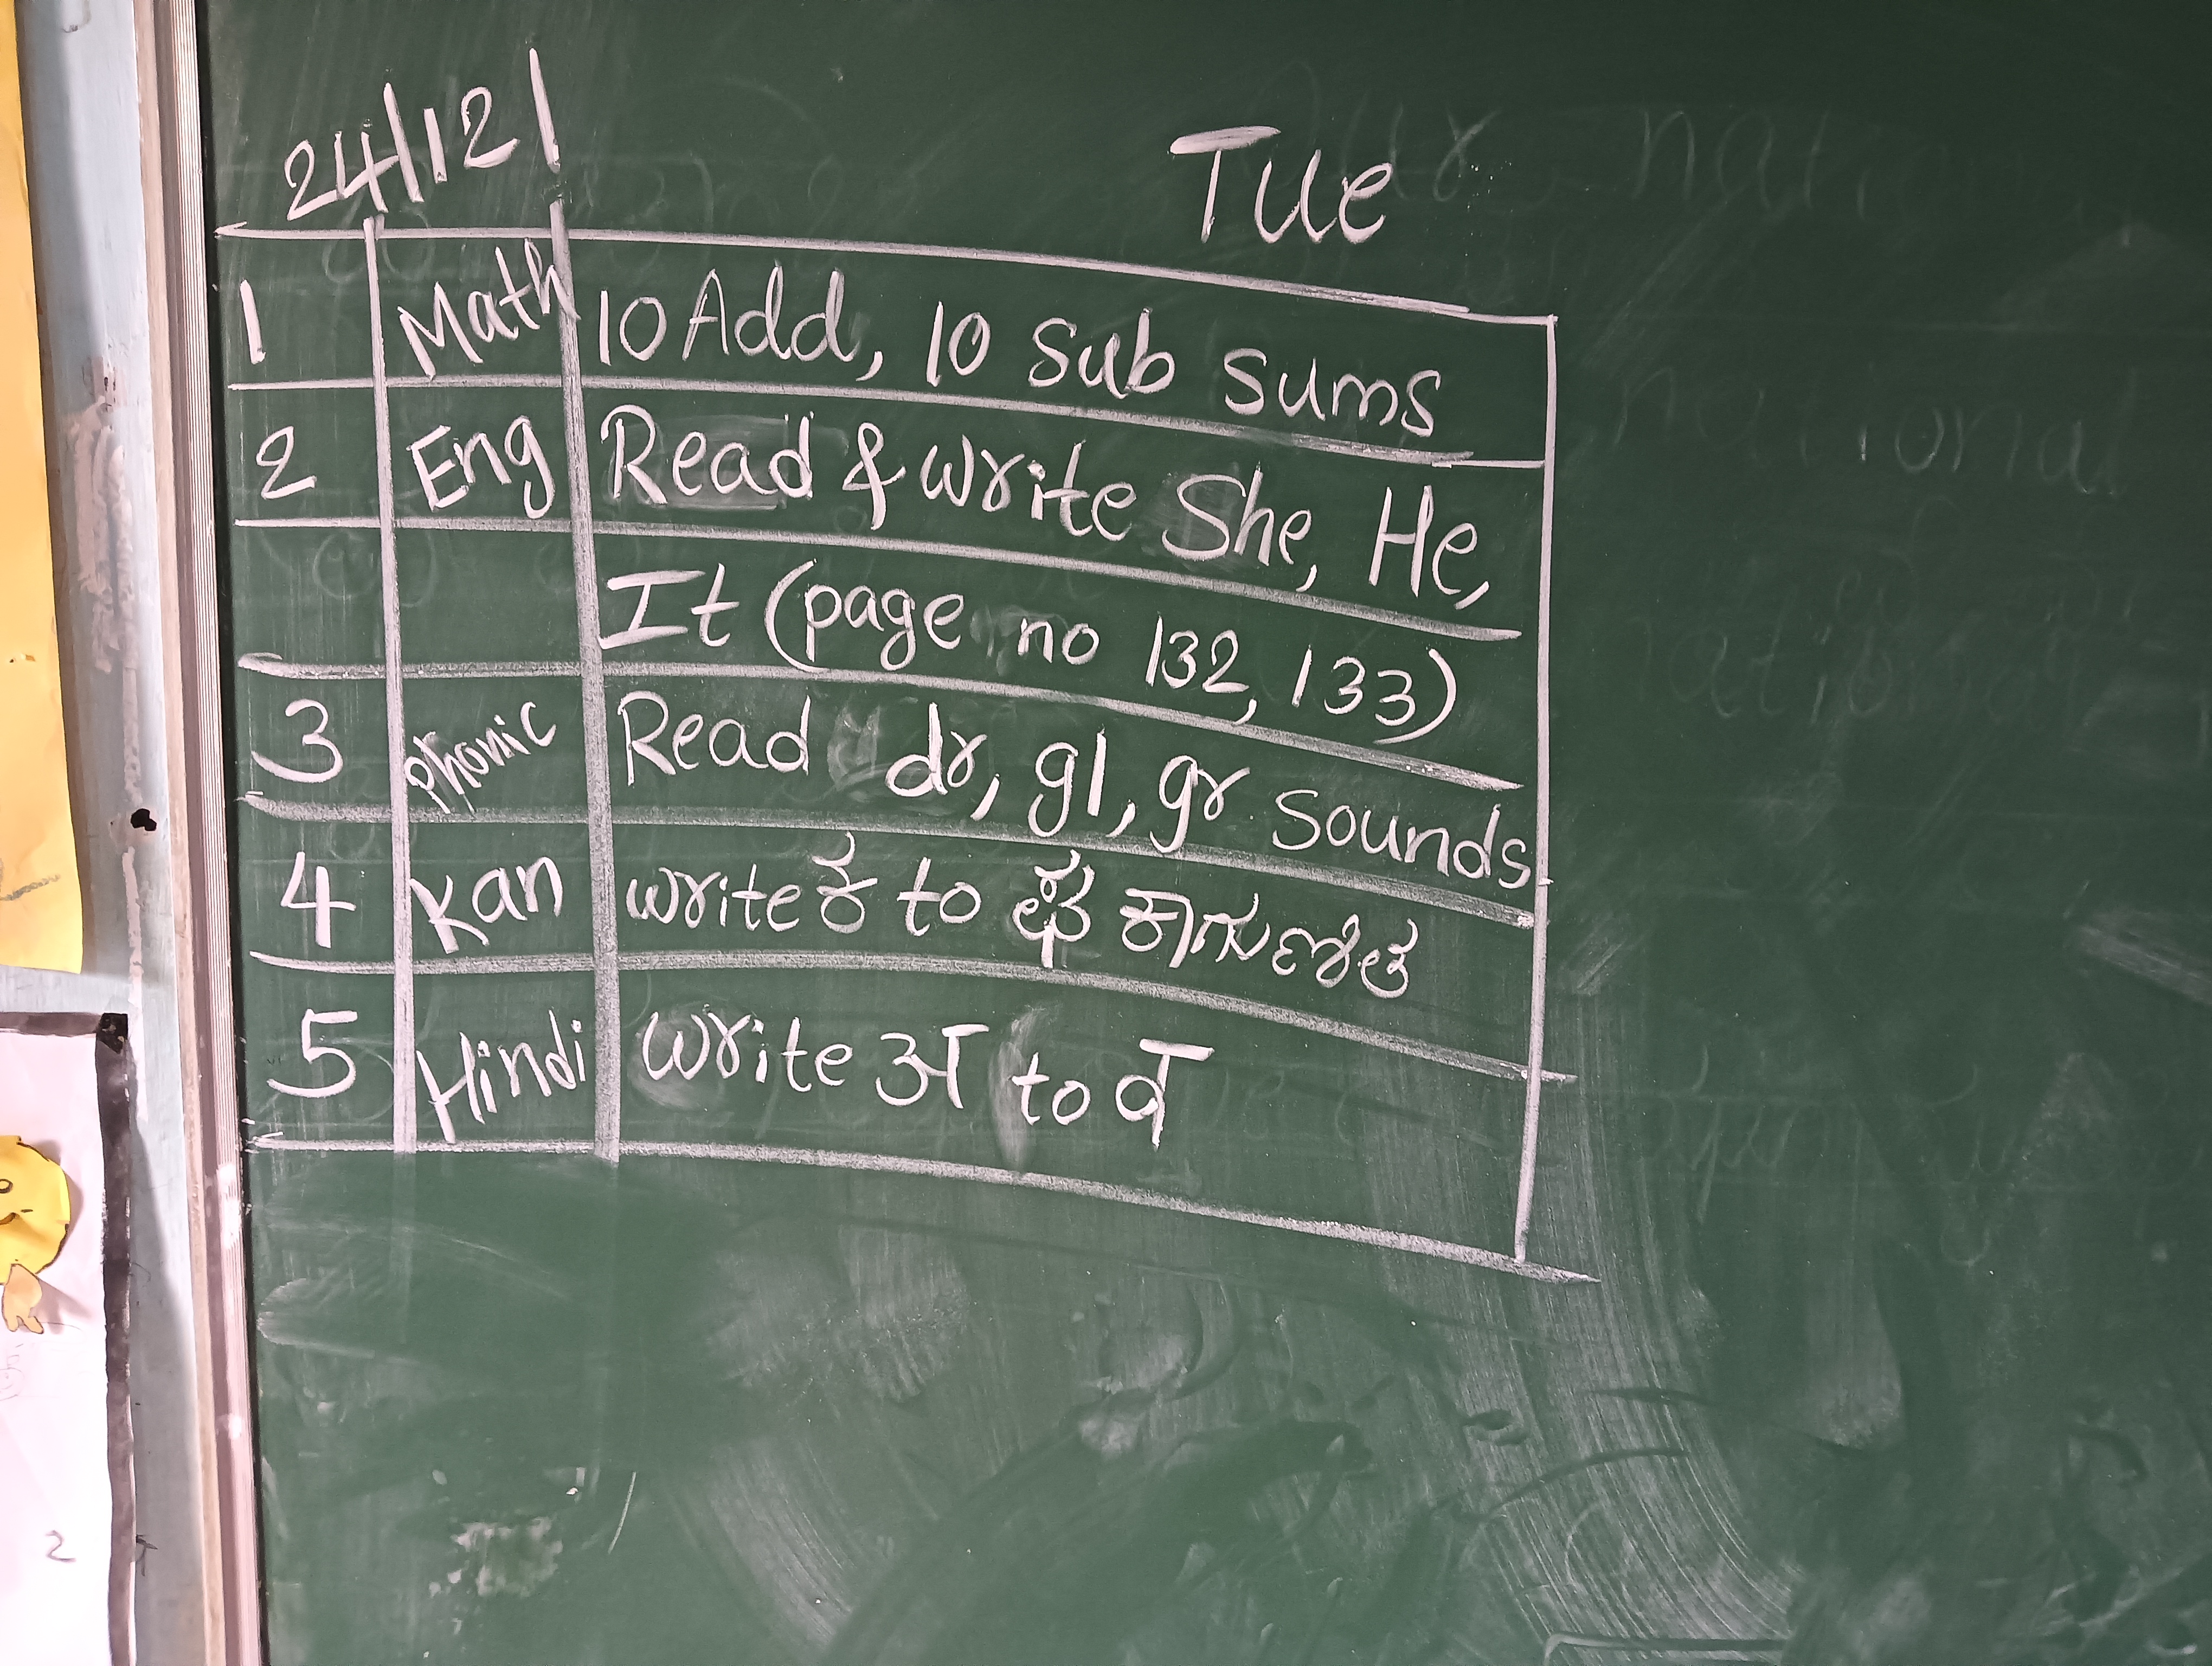 24/12/ Tue
1 Math 10 Add, 10 Sub sums
2 Eng Read & write She, He,
It (page no 132, 133)
3 Phonic Read dr, gl, gr sounds
4 Kan write ಕ to ಛ ಕಾಗುಣಿತ
5 Hindi write अ to व